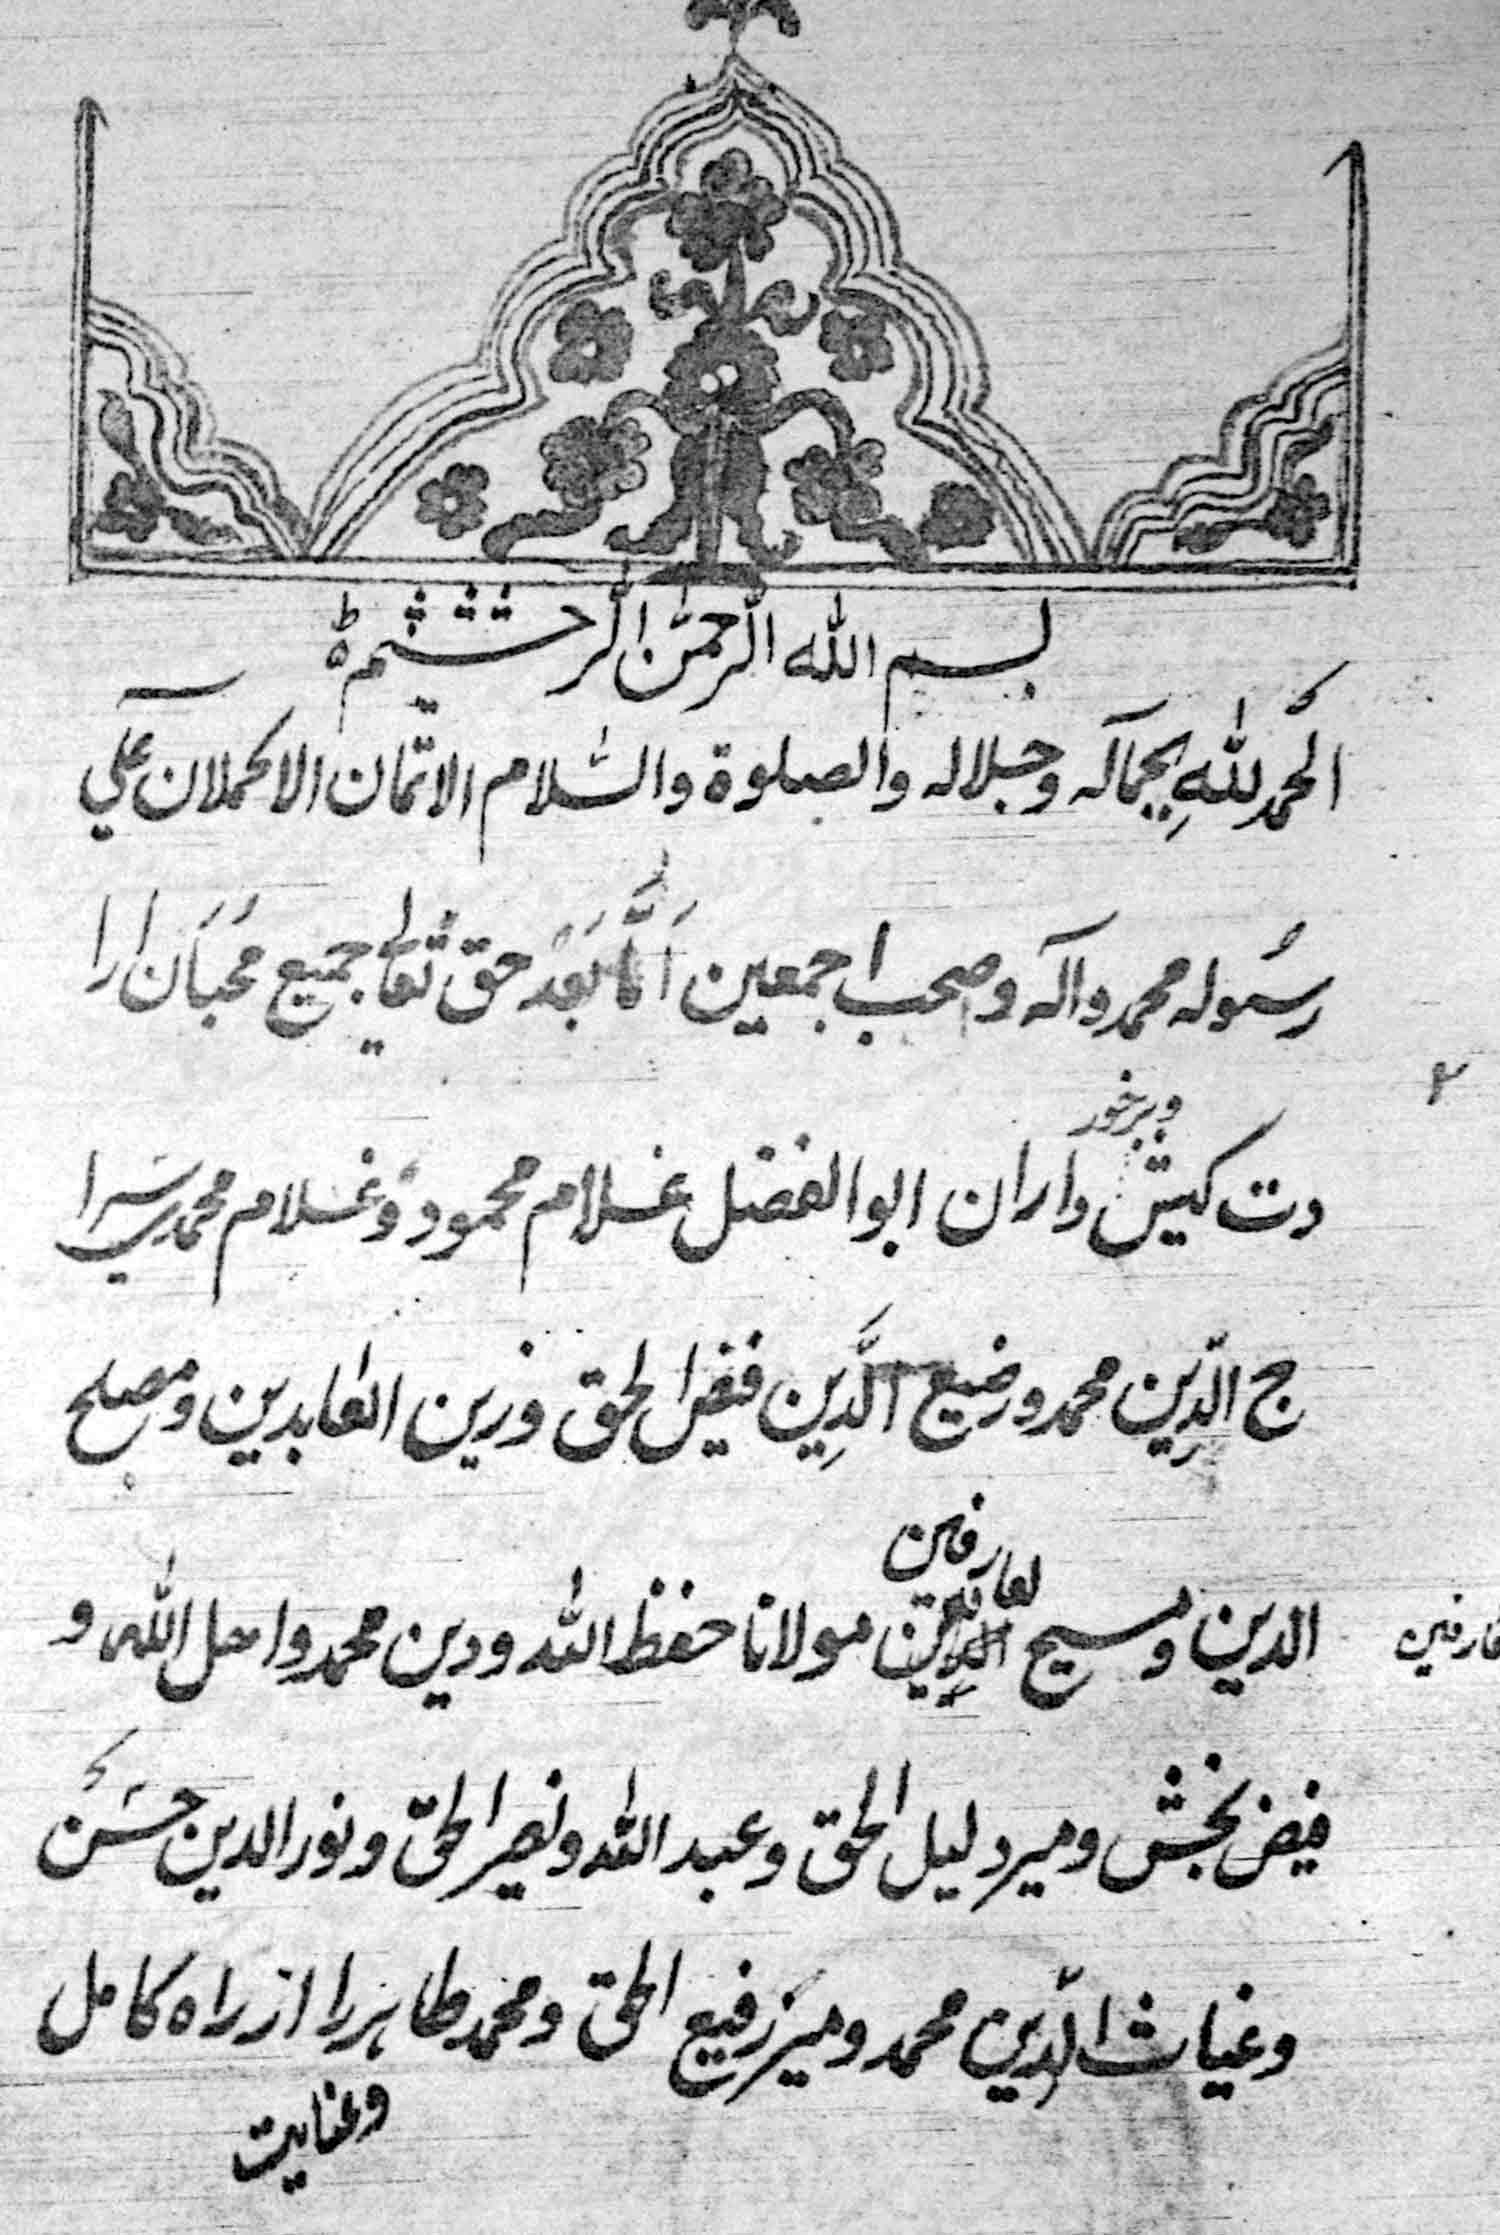 بسم الله الرحمٰن الرحیم
الحمد للهِ بجماله وجلاله والصلوة والسّلام الاتمان الاکملان علی
رسُوله محمد وآله وصحبه اجمعین اَمَّا بَعْدُ حق تعالی جمیع محبان ارا
وبرخور
دت کیش داران ابو الفضل غلام محمود وغلام محمد سرا
ج الدّین محمد ورضیع الَّدِین فقیر الحق وزین العابدین ومصلح
لعارفین
الدین ومسیح مولانا حفظ الله ودین محمد واصل الله و
عارفین
فیض بخش ومیر دلیل الحق وعبد الله ونصیر الحق ونور الدین حَسَن
وغیاث الدّین محمد ومیر رفیع الحق ومحمد طاهر را از راه کامل
وعنایت